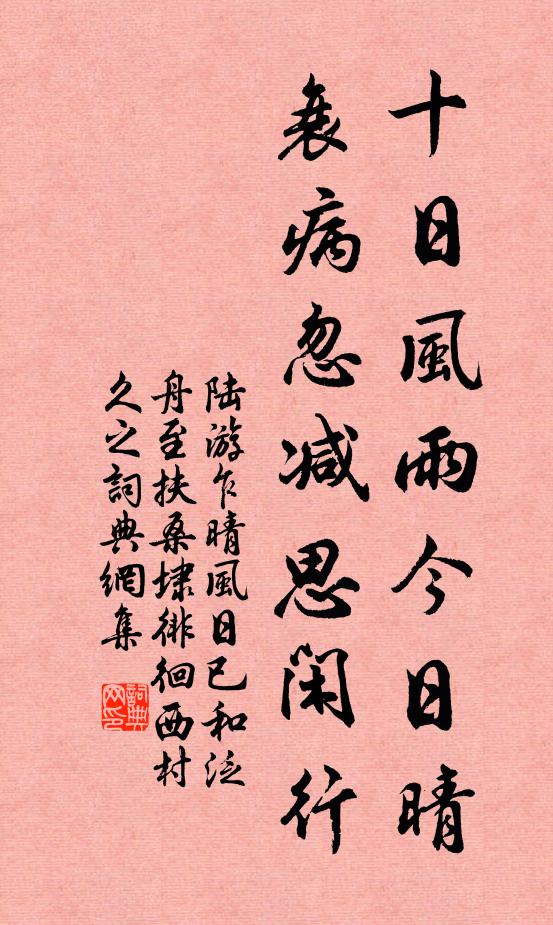 十日風雨今日晴
衰病忽减思閑行
陆游乍晴風日已和泛
舟至扶桑埭徘徊西村
久之詞典網集
詞典网印